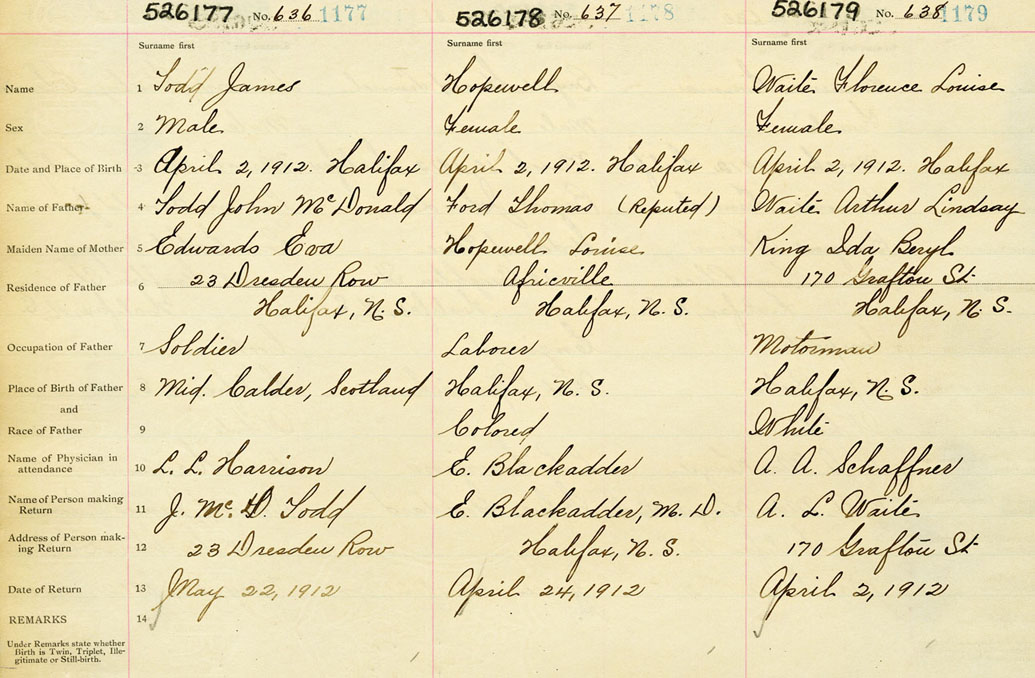 526177 No. 636 1177 526178 No. 637 1178 526179 No. 638 1179
Surname first Surname first Surname first
Name 1 Todd James Hopewell Waite Florence Louise
Sex 2 Male Female Female
Date and Place of Birth 3 April 2, 1912. Halifax April 2, 1912. Halifax April 2, 1912. Halifax
Name of Father 4 Todd John McDonald Ford Thomas (Reputed) Waite Arthur Lindsay
Maiden Name of Mother 5 Edwards Eva Hopewell Louise King Ida Beryl
23 Dresden Row Africville 170 Grafton St
Residence of Father 6
Halifax, N.S. Halifax, N.S. Halifax, N.S.
Occupation of Father 7 Soldier Laborer Motorman
Place of Birth of Father 8 Mid. Calder, Scotland Halifax, N.S. Halifax, N.S.
and
Race of Father 9 Colored White
Name of Physician in
attendance 10 L. L. Harrison E. Blackadder A. A. Schaffner
Name of Person making
Return 11 J. Mc. D. Todd E. Blackadder, M.D. A. L. Waite
Address of Person mak-
ing Return 12 23 Dresden Row Halifax, N.S. 170 Grafton St
Date of Return 13 May 22, 1912 April 24, 1912 April 2, 1912
REMARKS 14
Under Remarks state whether
Birth is Twin, Triplet, Ille-
gitimate or Still-birth.